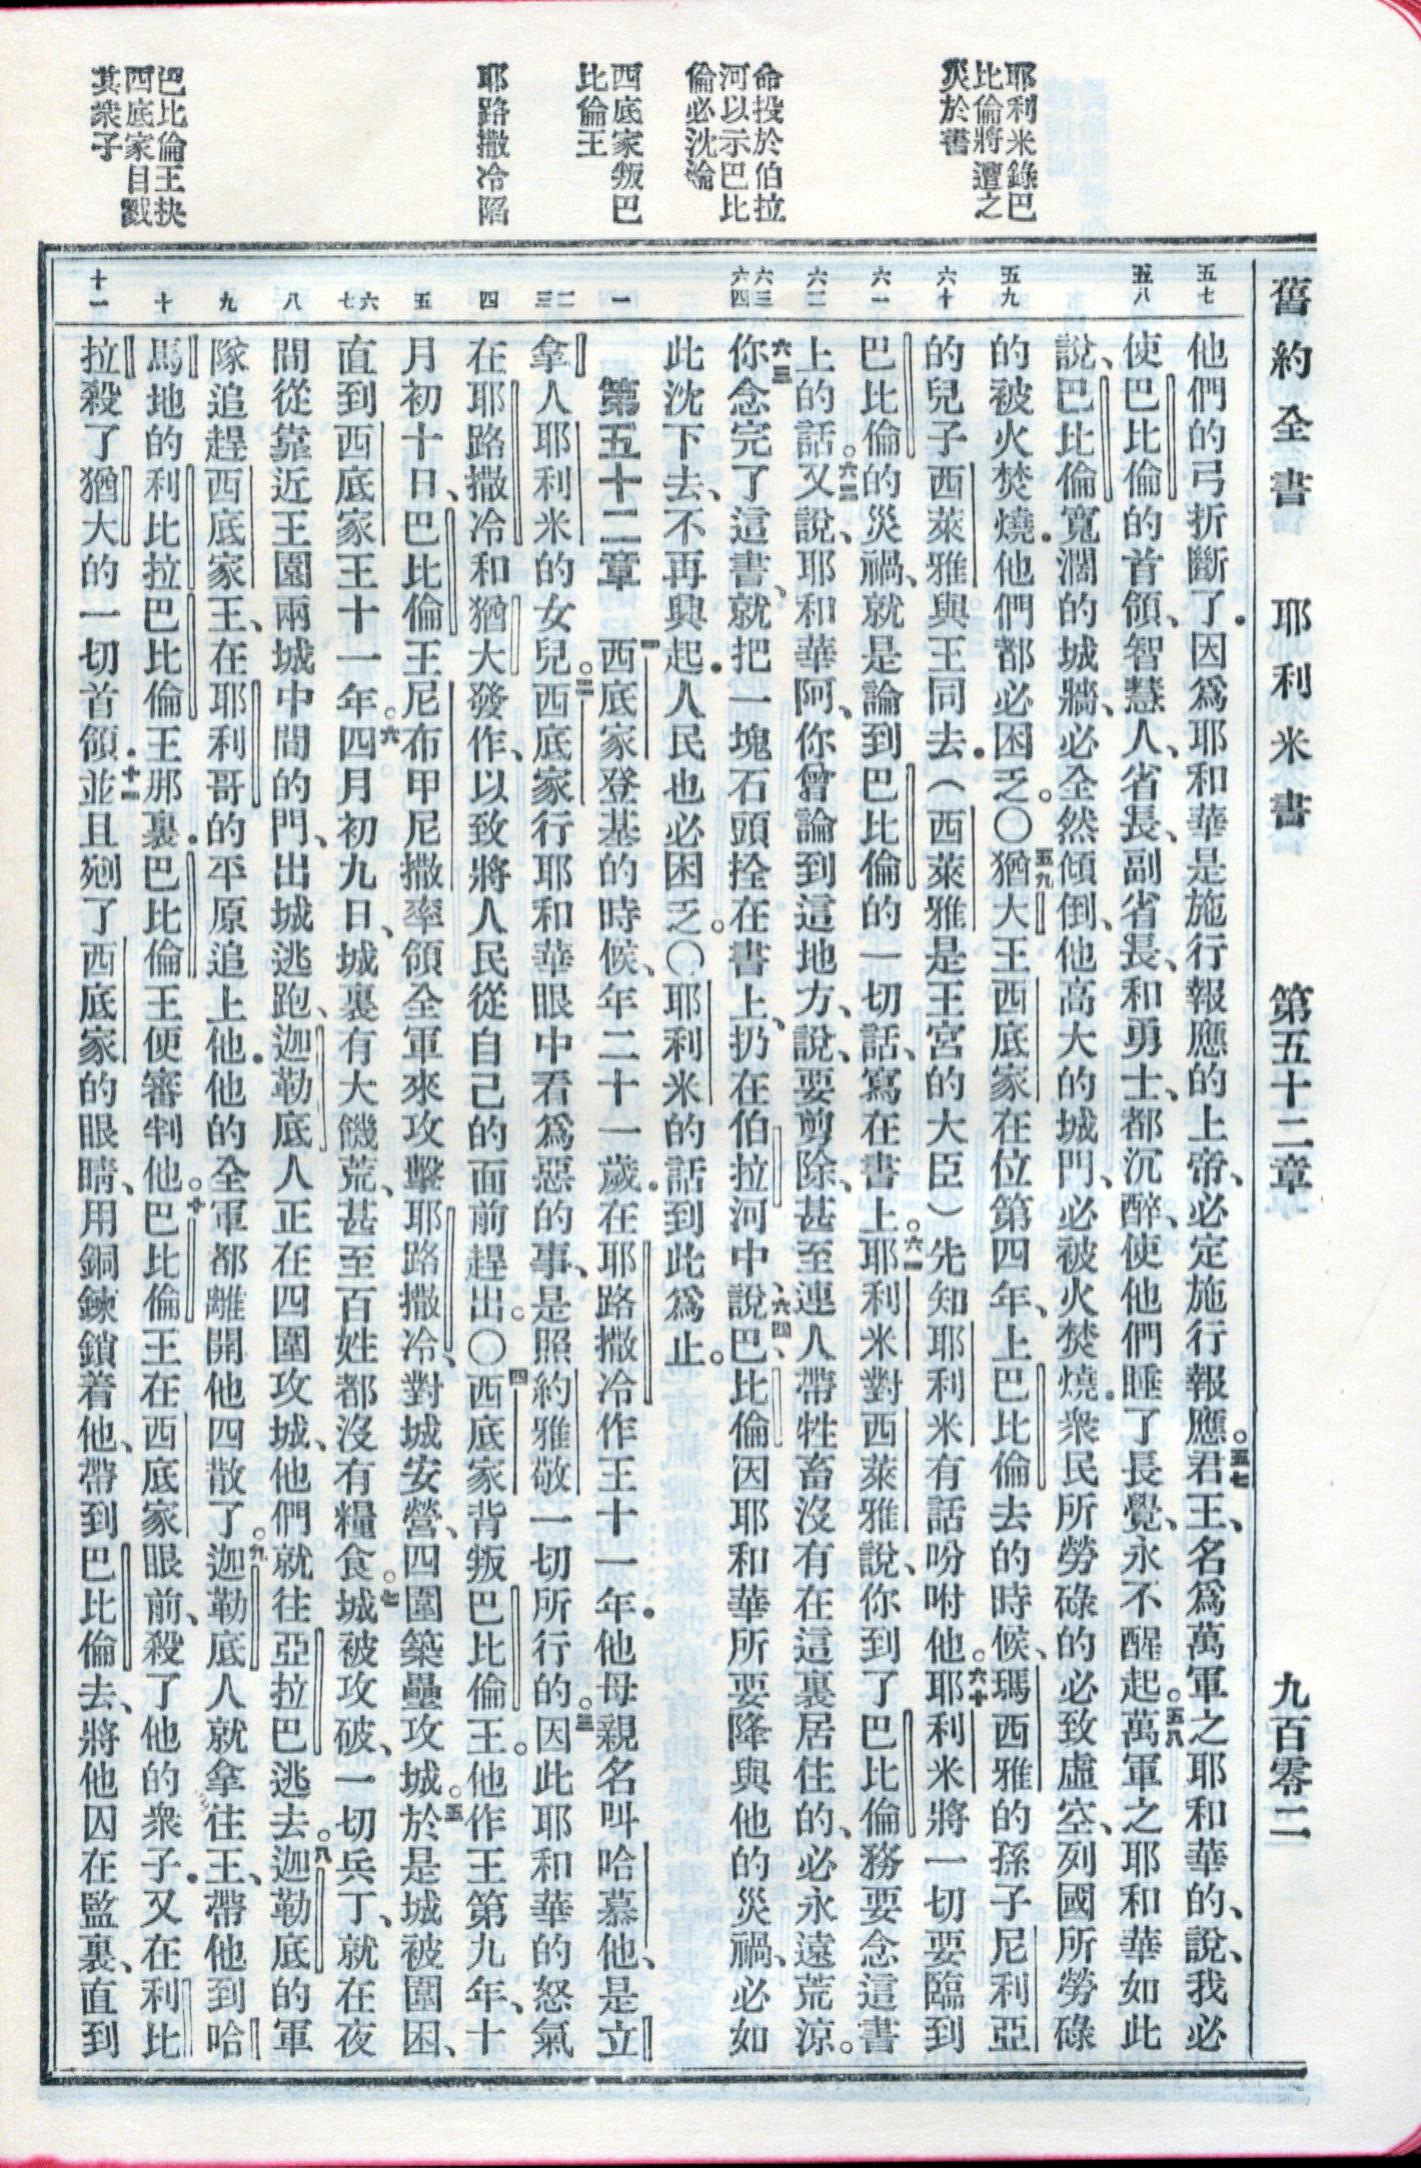 舊約全書 耶利米書 第五十二章 九百零二
耶利米錄巴
比倫將遭之
災於書
命投於伯拉
河以示巴比
倫必沈淪
西底家叛巴
比倫王
耶路撒冷陷
巴比倫王抉
西底家目戮
其衆子
五七
五八
五九
六十
六一
六二
六三
六四
一
二
三
四
五
六
七
八
九
十
十一
他們的弓折斷了．因爲耶和華是施行報應的上帝、必定施行報應。五七君王、名爲萬軍之耶和華的、說、我必
使巴比倫的首領、智慧人、省長、副省長、和勇士、都沉醉、使他們睡了長覺、永不醒起。五八萬軍之耶和華如此
說、巴比倫寬濶的城牆、必全然傾倒、他高大的城門、必被火焚燒．衆民所勞碌的必致虛空、列國所勞碌
的被火焚燒．他們都必困乏。〇五九猶大王西底家在位第四年、上巴比倫去的時候、瑪西雅的孫子尼利亞
的兒子西萊雅與王同去．（西萊雅是王宮的大臣）先知耶利米有話吩咐他。六十耶利米將一切要臨到
巴比倫的災禍、就是論到巴比倫的一切話、寫在書上。六一耶利米對西萊雅說、你到了巴比倫務要念這書
上的話。六二又說、耶和華阿、你曾論到這地方、說、要剪除、甚至連人帶牲畜沒有在這裏居住的、必永遠荒涼。
六三你念完了這書、就把一塊石頭拴在書上、扔在伯拉河中、六四說、巴比倫因耶和華所要降與他的災禍、必如
此沈下去、不再興起．人民也必困乏。〇耶利米的話到此爲止。
第五十二章 一西底家登基的時候、年二十一歲．在耶路撒冷作王十一年．他母親名叫哈慕他、是立
拿人耶利米的女兒。二西底家行耶和華眼中看爲惡的事、是照約雅敬一切所行的。三因此耶和華的怒氣
在耶路撒冷和猶大發作、以致將人民從自己的面前趕出。〇四西底家背叛巴比倫王。他作王第九年、十
月初十日、巴比倫王尼布甲尼撒率領全軍來攻擊耶路撒冷、對城安營、四圍築壘攻城。五於是城被圍困、
直到西底家王十一年。六四月初九日、城裏有大饑荒、甚至百姓都沒有糧食。七城被攻破、一切兵丁、就在夜
間從靠近王園兩城中間的門、出城逃跑、迦勒底人正在四圍攻城、他們就往亞拉巴逃去。八迦勒底的軍
隊追趕西底家王、在耶利哥的平原追上他．他的全軍都離開他四散了。九迦勒底人就拿住王、帶他到哈
馬地的利比拉巴比倫王那裏．巴比倫王便審判他。十巴比倫王在西底家眼前、殺了他的衆子．又在利比
拉殺了猶大的一切首領．十一並且剜了西底家的眼睛、用銅鍊鎖着他、帶到巴比倫去、將他囚在監裏、直到